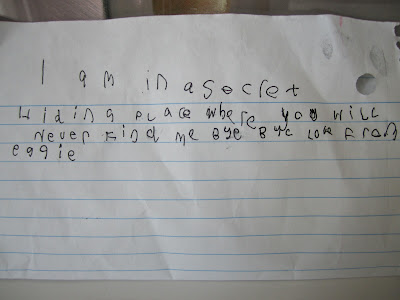 I am in a secret
hiding place where you will
never find me bye bye love from
eggie